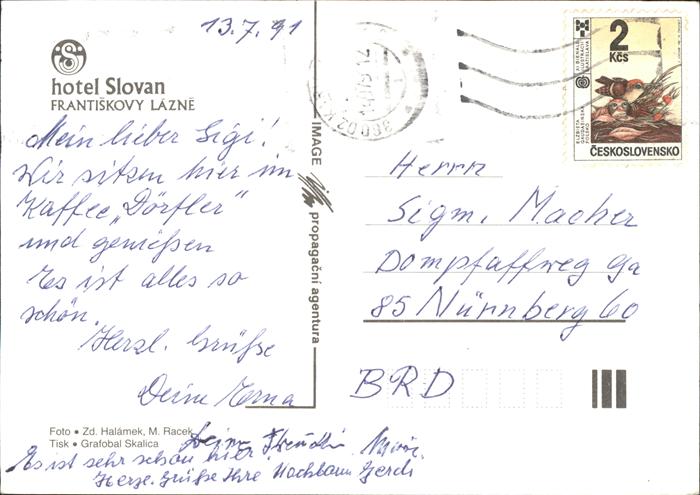 13.7.91
hotel Slovan
FRANTIŠKOVY LÁZNĚ
Mein lieber Sigi!
Wir sitzen hier im
Kaffee „Dörfler"
und genießen
Es ist alles so
schön.
Herzl. Grüße
Deine Erna
Foto • Zd. Halámek, M. Racek
Tisk • Grafobal Skalica
Es ist sehr schön hier
Herzl. Grüße Ihre Nachbarin Gerdi
IMAGE propagační agentura
2 Kčs
ČESKOSLOVENSKO
Herrn
Sigm. Macher
Dompfaffweg 9a
85 Nürnberg 60
BRD